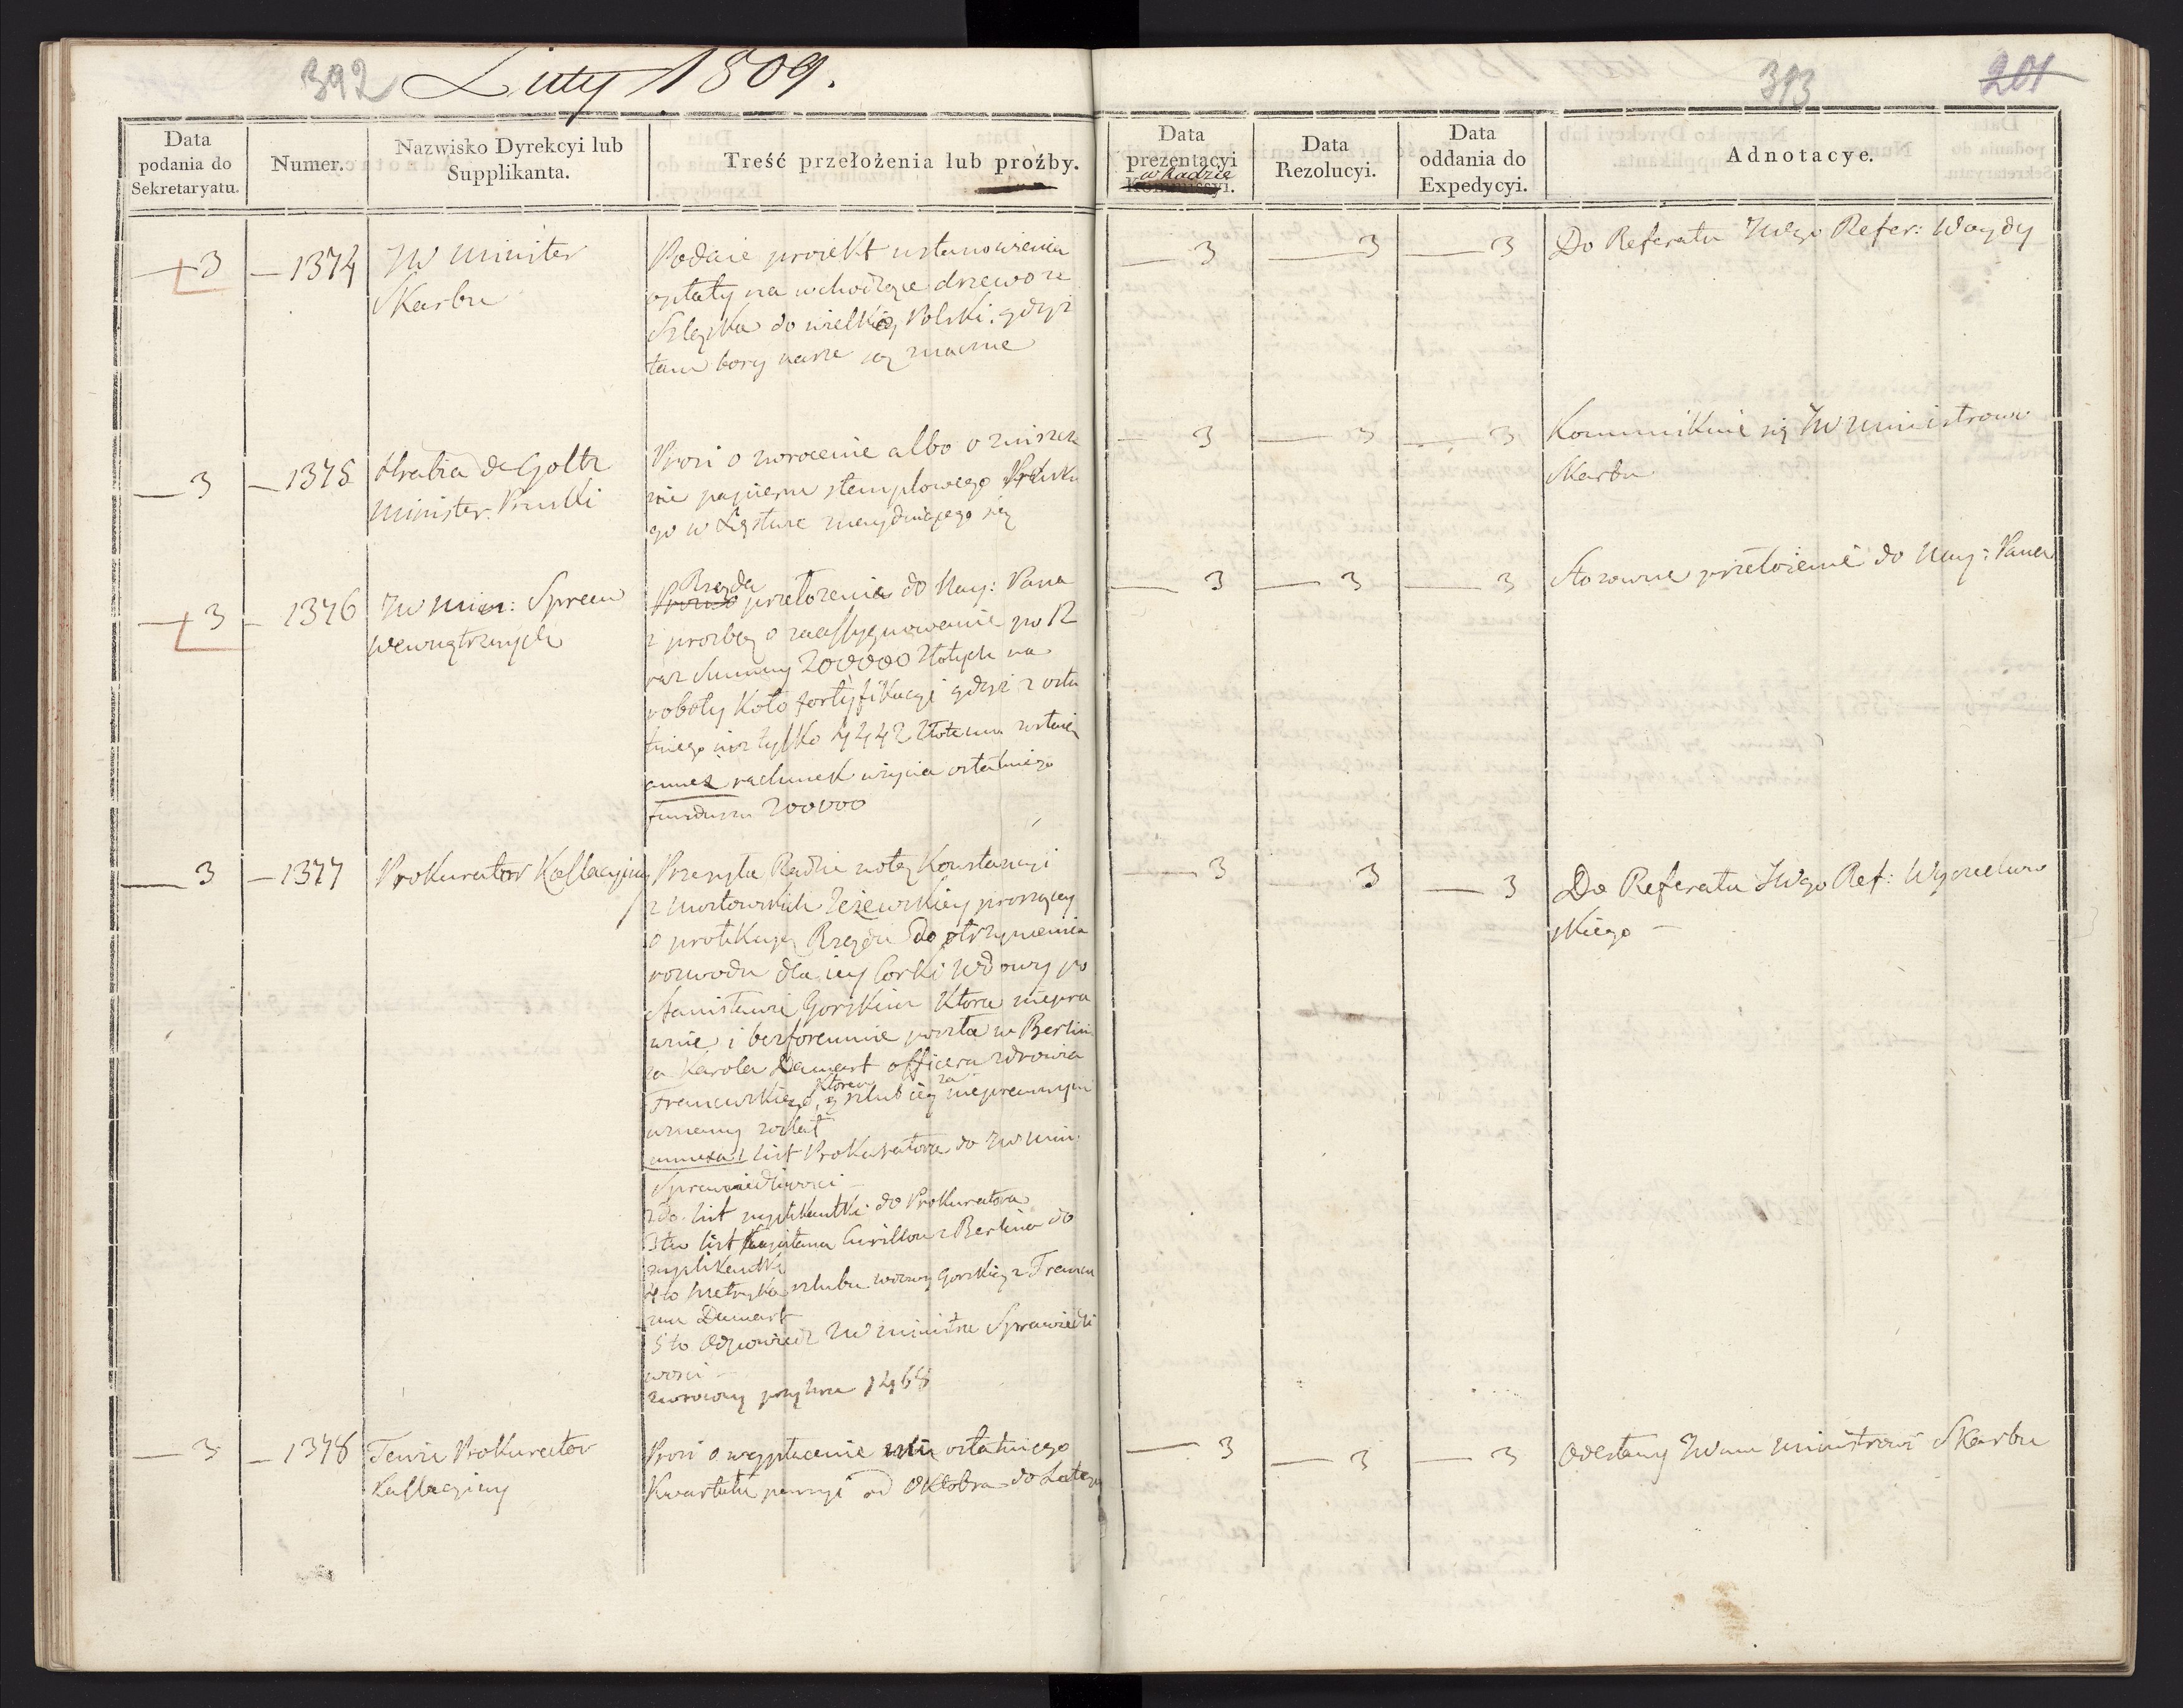 392 Luty 1809.
393 201
Data podania do Sekretaryatu.
Numer.
Nazwisko Dyrekcyi lub Supplikanta.
Treść przełożenia lub proźby.
Data prezentacyi Kommissyi. w Radzie
Data Rezolucyi.
Data oddania do Expedycyi.
Adnotacye.
3 — 1374
JW Minister
Skarbu
Podaie proiekt ustanowienia
opłaty na wchodzące drzewo ze
Szląska do wielkiey Polski. gdyż
tam bory nasze są znaczne
3 3 3
Do Referatu JWgo Refer: Woydy
3 — 1375
Hrabia de Goltz
Minister Pruski
Prosi o zwrocenie albo o zniszcze
nie papieru stemplowego Prusku
go w znayduiącego się
3 3 3
Kommunikuie się JW Ministrowi
Skarbu
3 — 1376
JW Min: Spraw
wewnątrznych
Rząda
przełożenia do Nay: Pana
z proźbą o zaassygnowanie po 12
raz Summy 200000 Złotych na
roboty koło fortyfikacyi gdyż z osta
tniego iuż tylko 4442 Złote mu zostaie
annex rachunek użycia ostatniego
funduszu 200000
3 3 3
Stosowne przełożenie do Nay: Pana
3 — 1377
Prokurator Kassacyiny
Przesyła Radzie notę Konstancyi
z Mostowskich Zeżewskiey proszącey
o protekcyą Rządu do otrzymania
rozwodu dla iey Corki wdowy po
Stanisławie Gorskim Ktora niepra
wnie i bezforemnie poszła w Berlin
za Karola Damart officera zdrowia
Francuskiego, ktoren szlub iey za nieprawnym
uznany został
annexa 1 list Prokuratora do JW Min:
Sprawiedliwości —
2do list suplikantki do Prokuratora
3tio list Kapitana Curillon z Berlina do
suplikantki
4to Metryka szlubu wdowy Gorskiey z Francu
zem Damart
5to Odpowiedź JW Ministra Sprawiedli
wości —
zwrocony przy Nrze 1468
3 3 3
Do Referatu JWgo Ref: Wyczechow
skiego —
3 — 1378
Tenże Prokurator
Kassacyiny
Prosi o wypłacenie mu ostatniego
Kwartału pensyi od Oktobra do Lutego
3 3 3
Odesłany JWmu Ministrowi Skarbu